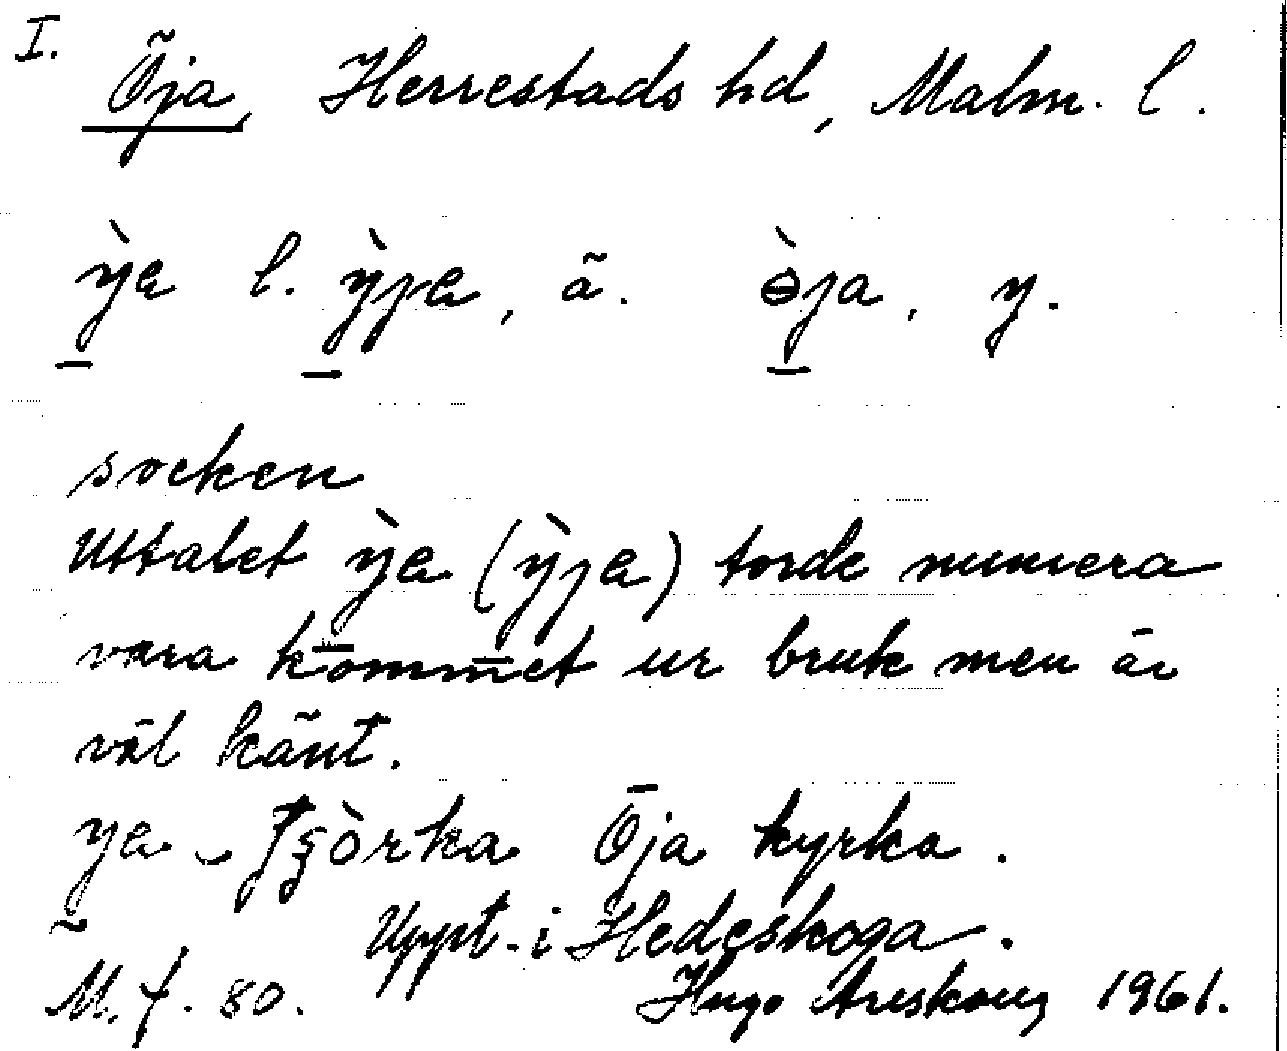 I. Öja, Herrestads hd, Malm. l.
ỳa l. ỳja, ä. ə̀ja, y.
socken
Uttalet ỳa (ỳja) torde numera
vara kommet ur bruk men är
väl känt.
ya - kyrka Öja kyrka.
Uppt. i Hedeskoga.
M. f. 80. Hugo Areskoug 1961.